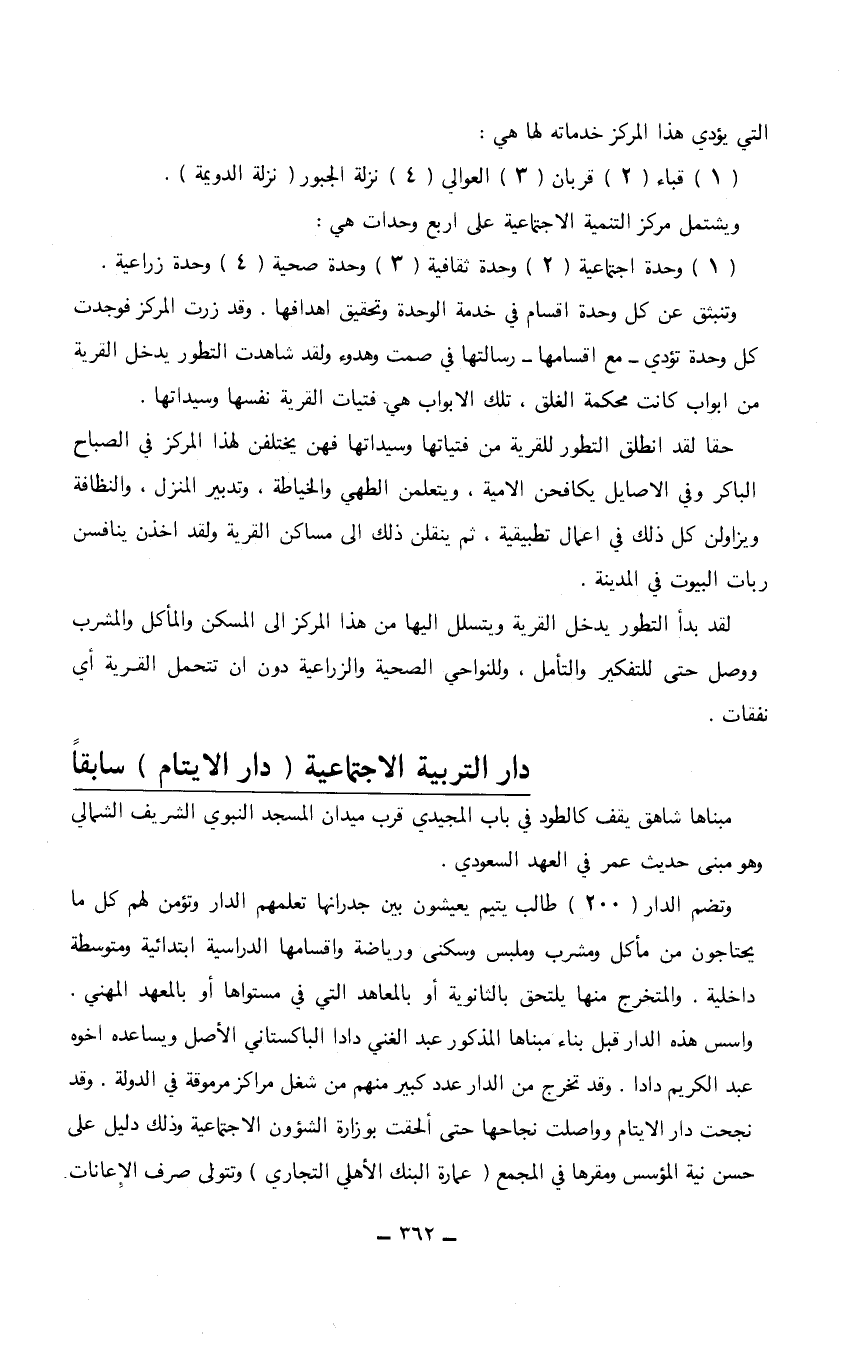 التي يؤدي هذا المركز خدماته لها هي :
( ١ ) قباء ( ٢ ) قربان ( ٣ ) العوالي ( ٤ ) نزلة الجبور ( نزلة الدويمة ) .
ويشتمل مركز التنمية الاجتماعية على اربع وحدات هي :
( ١ ) وحدة اجتماعية ( ٢ ) وحدة ثقافية ( ٣ ) وحدة صحية ( ٤ ) وحدة زراعية .
وتنبثق عن كل وحدة اقسام في خدمة الوحدة وتحقيق اهدافها . وقد زرت المركز فوجدت
كل وحدة تؤدي ـ مع اقسامها ـ رسالتها في صمت وهدوء ولقد شاهدت التطور يدخل القرية
من ابواب كانت محكمة الغلق ، تلك الابواب هي فتيات القرية نفسها وسيداتها .
حقا لقد انطلق التطور للقرية من فتياتها وسيداتها فهن يختلفن لهذا المركز في الصباح
الباكر وفي الاصايل يكافحن الامية ، ويتعلمن الطهي والخياطة ، وتدبير المنزل ، والنظافة
ويزاولن كل ذلك في اعمال تطبيقية ، ثم ينقلن ذلك الى مساكن القرية ولقد اخذن ينافسن
ربات البيوت في المدينة .
لقد بدأ التطور يدخل القرية ويتسلل اليها من هذا المركز الى المسكن والمأكل والمشرب
ووصل حتى للتفكير والتأمل ، وللنواحي الصحية والزراعية دون ان تتحمل القرية أي
نفقات .
دار التربية الاجتماعية ( دار الايتام ) سابقاً
مبناها شاهق يقف كالطود في باب المجيدي قرب ميدان المسجد النبوي الشريف الشمالي
وهو مبنى حديث عمر في العهد السعودي .
وتضم الدار ( ٢٠٠ ) طالب يتيم يعيشون بين جدرانها تعلمهم الدار وتؤمن لهم كل ما
يحتاجون من مأكل ومشرب وملبس وسكنى ورياضة واقسامها الدراسية ابتدائية ومتوسطة
داخلية . والمتخرج منها يلتحق بالثانوية أو بالمعاهد التي في مستواها أو بالمعهد المهني .
واسس هذه الدار قبل بناء مبناها المذكور عبد الغني دادا الباكستاني الأصل ويساعده اخوه
عبد الكريم دادا . وقد تخرج من الدار عدد كبير منهم من شغل مراكز مرموقة في الدولة . وقد
نجحت دار الايتام وواصلت نجاحها حتى ألحقت بوزارة الشؤون الاجتماعية وذلك دليل على
حسن نية المؤسس ومقرها في المجمع ( عمارة البنك الأهلي التجاري ) وتتولى صرف الإعانات
ـ ٣٦٢ ـ